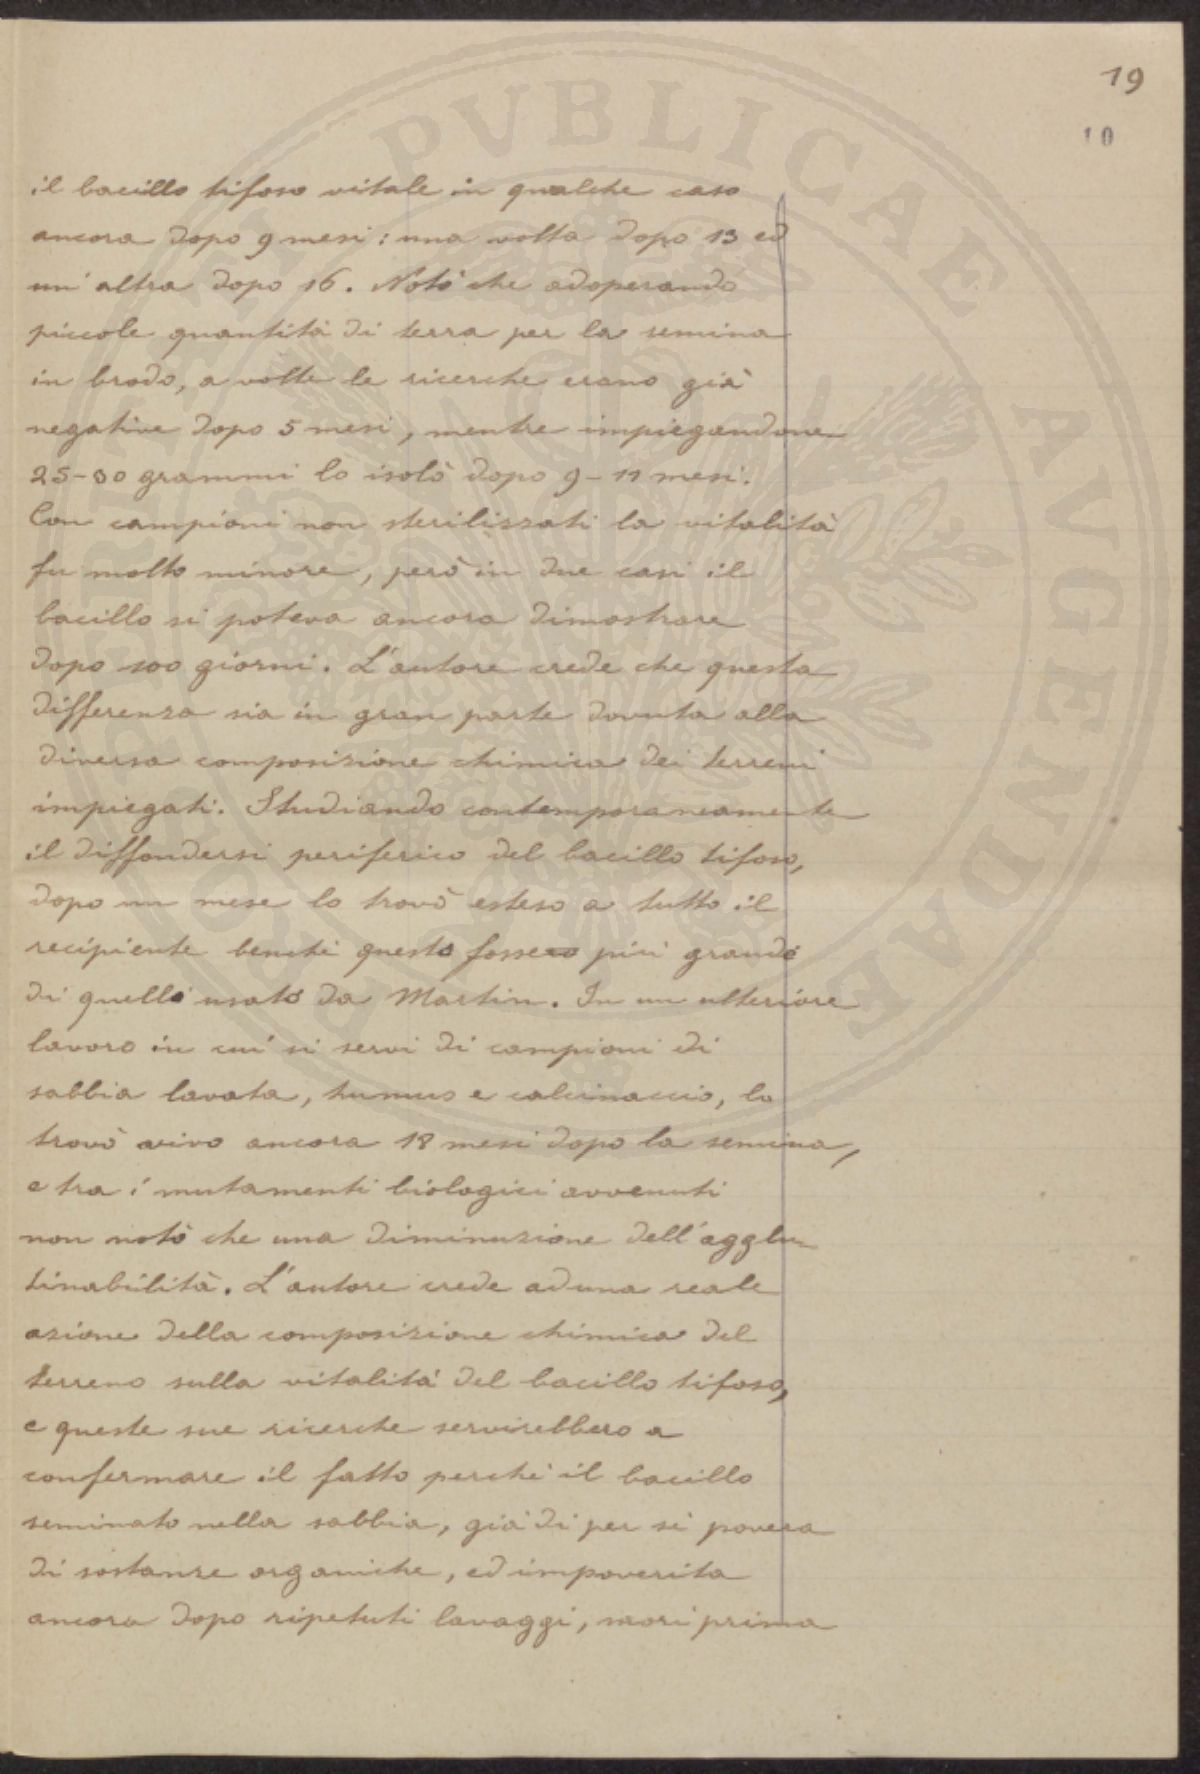 19
10
il bacillo tifoso vitale in qualche caso
ancora dopo 9 mesi: una volta dopo 13 ed
un'altra dopo 16. Notò che adoperando
piccole quantità di terra per la semina
in brodo, a volte le ricerche erano già
negative dopo 5 mesi, mentre impiegandone
25-30 grammi lo isolò dopo 9-11 mesi.
Con campioni non sterilizzati la vitalità
fu molto minore, però in due casi il
bacillo si poteva ancora dimostrare
dopo 100 giorni. L'autore crede che questa
differenza sia in gran parte dovuta alla
diversa composizione chimica dei terreni
impiegati. Studiando contemporaneamente
il diffondersi periferico del bacillo tifoso,
dopo un mese lo trovò esteso a tutto il
recipiente benchè questo fosse più grande
di quello usato da Martin. In un ulteriore
lavoro in cui si servì di campioni di
sabbia lavata, humus e calcinaccio, lo
trovò vivo ancora 18 mesi dopo la semina,
e tra i mutamenti biologici avvenuti
non notò che una diminuzione dell'agglu-
tinabilità. L'autore crede ad una reale
azione della composizione chimica del
terreno sulla vitalità del bacillo tifoso,
e queste sue ricerche servirebbero a
confermare il fatto perchè il bacillo
seminato nella sabbia, già di per sè povera
di sostanze organiche, ed impoverita
ancora dopo ripetuti lavaggi, morì prima
PVBLICAE AVGENDAE